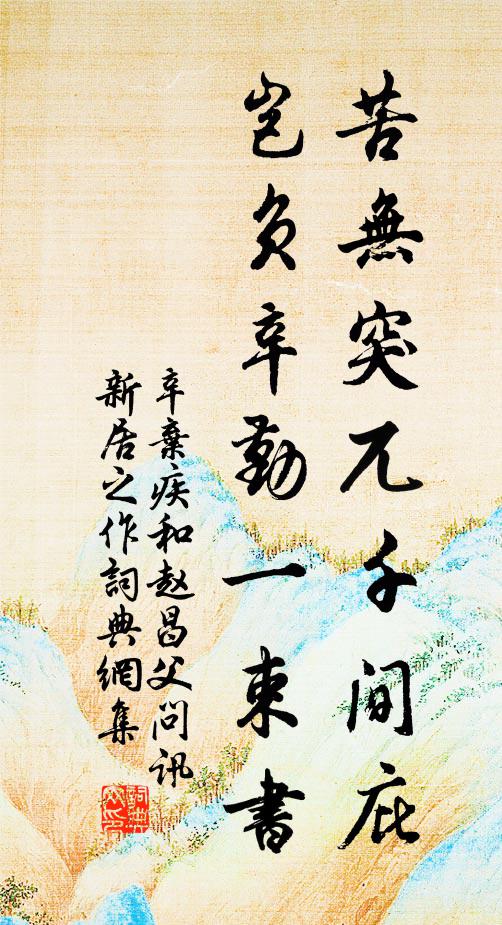 苦無突兀千間庇
豈負辛勤一束書
辛棄疾和赵昌父问訊
新居之作詞典網集